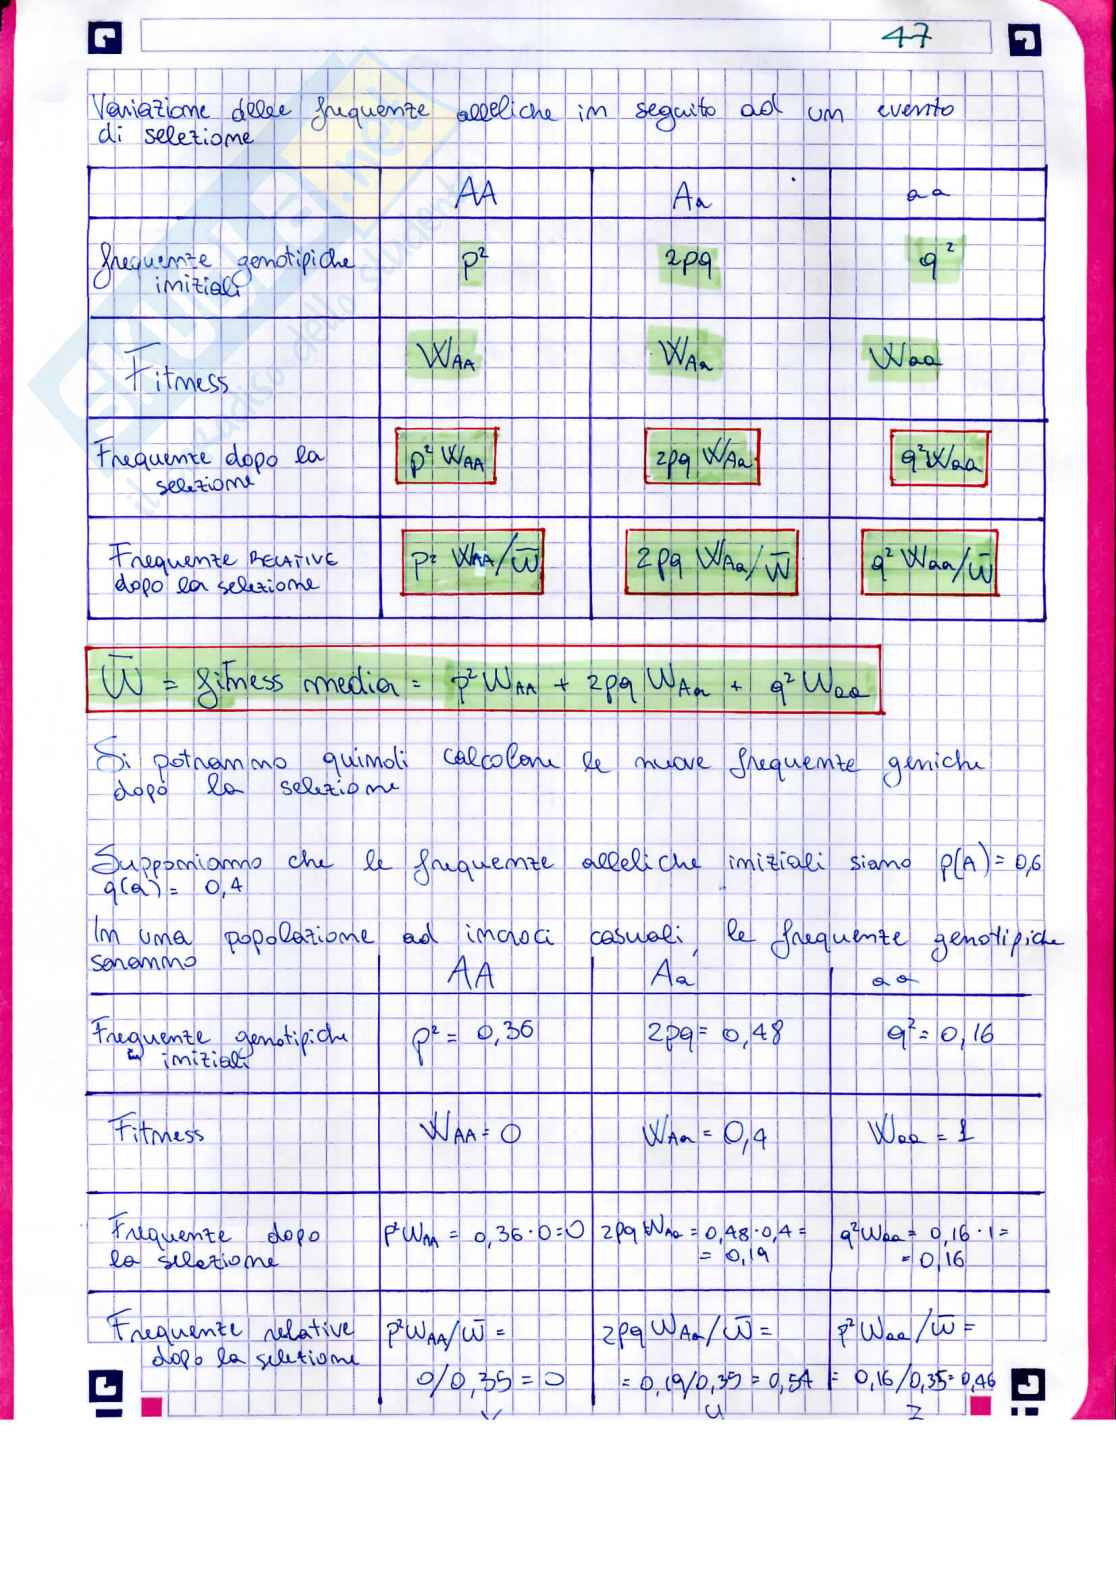 47
Variazione delle frequenze alleliche in seguito ad un evento
di selezione
AA Aa aa
frequenze genotipiche iniziali p² 2pq q²
Fitness WAA WAa Waa
Frequenze dopo la selezione p² WAA 2pq WAa q²Waa
Frequenze RELATIVE dopo la selezione p² WAA/W̅ 2pq WAa/W̅ q² Waa/W̅
W̅ = fitness media = p² WAA + 2pq WAa + q² Waa
Si potranno quindi calcolare le nuove frequenze geniche
dopo la selezione
Supponiamo che le frequenze alleliche iniziali siano p(A) = 0,6
q(a) = 0,4
In una popolazione ad incroci casuali, le frequenze genotipiche
saranno
AA Aa aa
Frequenze genotipiche iniziali p² = 0,36 2pq = 0,48 q² = 0,16
Fitness WAA = 0 WAa = 0,4 Waa = 1
Frequenze dopo p²WAA = 0,36·0=0 2pq WAa = 0,48·0,4= q²Waa = 0,16·1=
la selezione = 0,19 = 0,16
Frequenze relative p²WAA/W̅ = 2pq WAa/W̅ = p²Waa/W̅ =
dopo la selezione 0/0,35 = 0 = 0,19/0,35 = 0,54 = 0,16/0,35=0,46
skuola.net
il paradiso dello studente